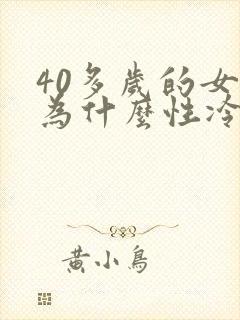 40多歲的女
為什麼性冷
黃小鳥